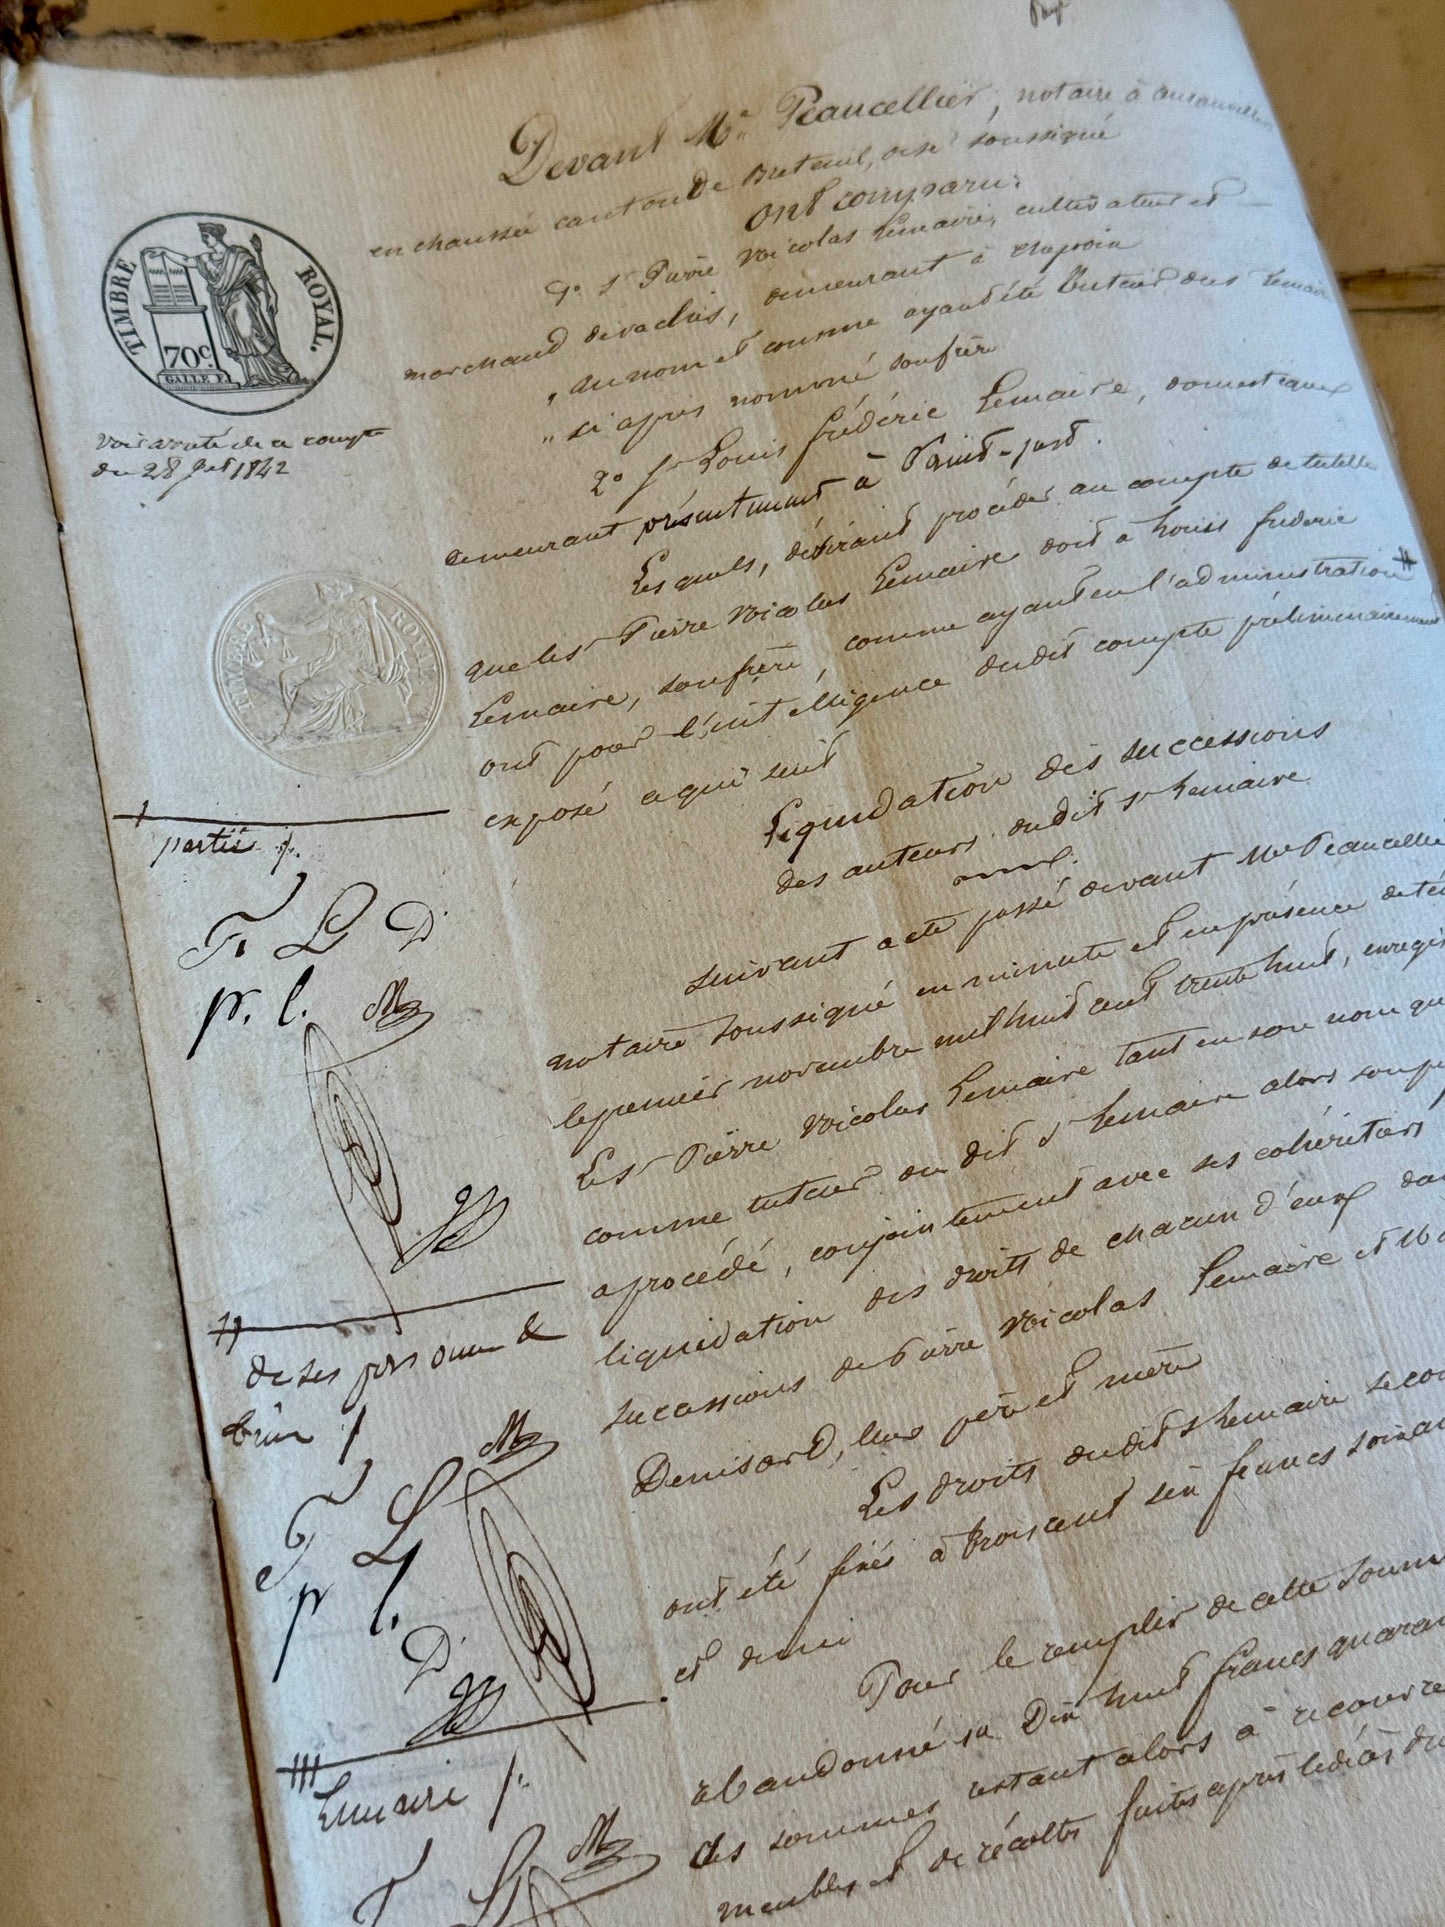 Devant Me Peaucellier, notaire à ansauvillers
en chaussée canton de Breteuil, oise soussigné
Ont comparu:
1° Sr Pierre Nicolas Lemaire, cultivateur et
marchand de vaches, demeurant à chepoix
" au nom et comme ayant été tuteur du Sr Lemaire
" ci après nommé son frère
2° Sr Louis frédéric Lemaire, domestique
demeurant présentement à Saint-just.
Lesquels, désirant procéder au compte de tutelle
que le Sr Pierre Nicolas Lemaire doit à Louis frédéric
Lemaire, son frère, comme ayant eu l'administration #
ont pour l'intelligence dudit compte préliminairement
exposé ce qui suit
Liquidation des successions
des auteurs dudit Sr Lemaire
Suivant acte passé devant Me Peaucellier
notaire soussigné en minute et en présence de té
le premier novembre mil huit cent trente huit, enregis
Le Sr Pierre Nicolas Lemaire tant en son nom que
comme tuteur du dit Sr Lemaire alors son pu
a procédé, conjointement avec ses cohéritiers
liquidation des droits de chacun d'eux da
successions de Pierre Nicolas Lemaire et M
Denisard, leur père et mère
Les droits dudit Sr Lemaire
ont été fixés à trois cent six francs soixan
et demi
Pour le remplir de cette somme
abandonné Dix huit francs quaran
des sommes restant alors à recouvre
meubles et de récoltes faites après le décès du
TIMBRE ROYAL.
70c.
GALLE F.
Voir arrêté de ce compte
du 28 1842
TIMBRE ROYAL
partie
F. L D
P. l.
de ses personne &
biens
F L
P l.
D
Lemaire
F L